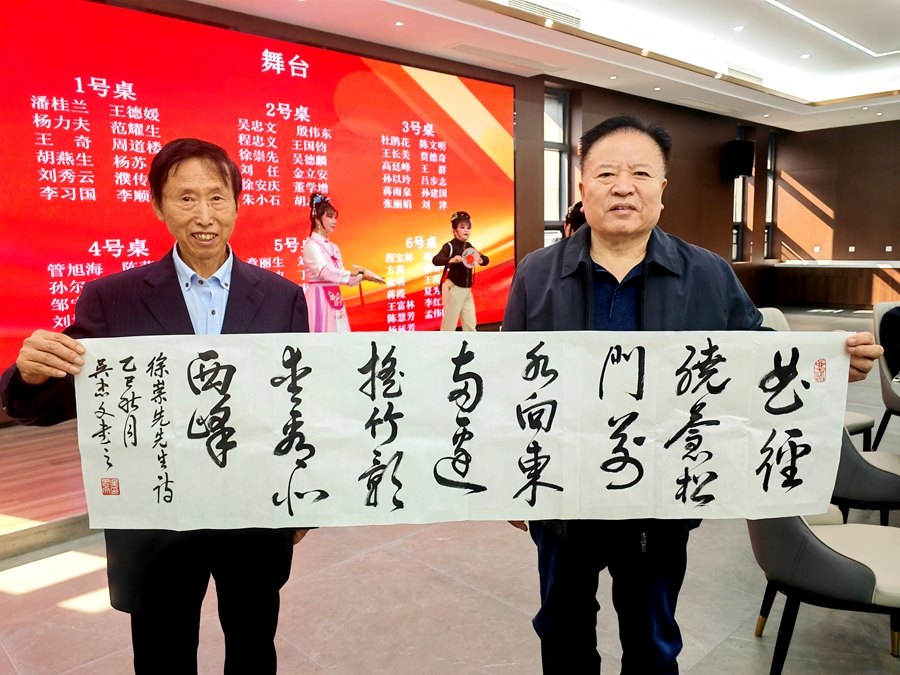 舞台
1号桌
潘桂兰 王德媛
杨力夫 范耀生
王 奇 周道楼
胡燕生 杨苏
刘秀云 濮传
李习国 李顺
2号桌
吴忠文 殷伟东
程忠义 王国钧
徐崇先 吴德麟
刘 任 金立安
徐安庆 董学增
朱小石 胡
3号桌
杜鹃花 陈文明
王长美 贾德奇
高廷峰 王 群
孙以玲 吕步志
蒋雨泉 孙建国
张丽娟 刘 津
4号桌
管旭海 陈
孙尔
刘
5号桌
章丽生 刘
6号桌
程宝林
方
张明 王
蒋霞 夏为
王富林 李红
陈慧芳 孟伟
杨延芳
曲徑
繞蒼松
門前
水向東
南邊
搖竹影
峰
徐崇先先生詩
乙巳秋月
吴忠文書之